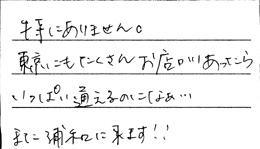 特にありません。
東京にもたくさんお店があったら
いっぱい通えるのになぁ…
また浦和に来ます!!